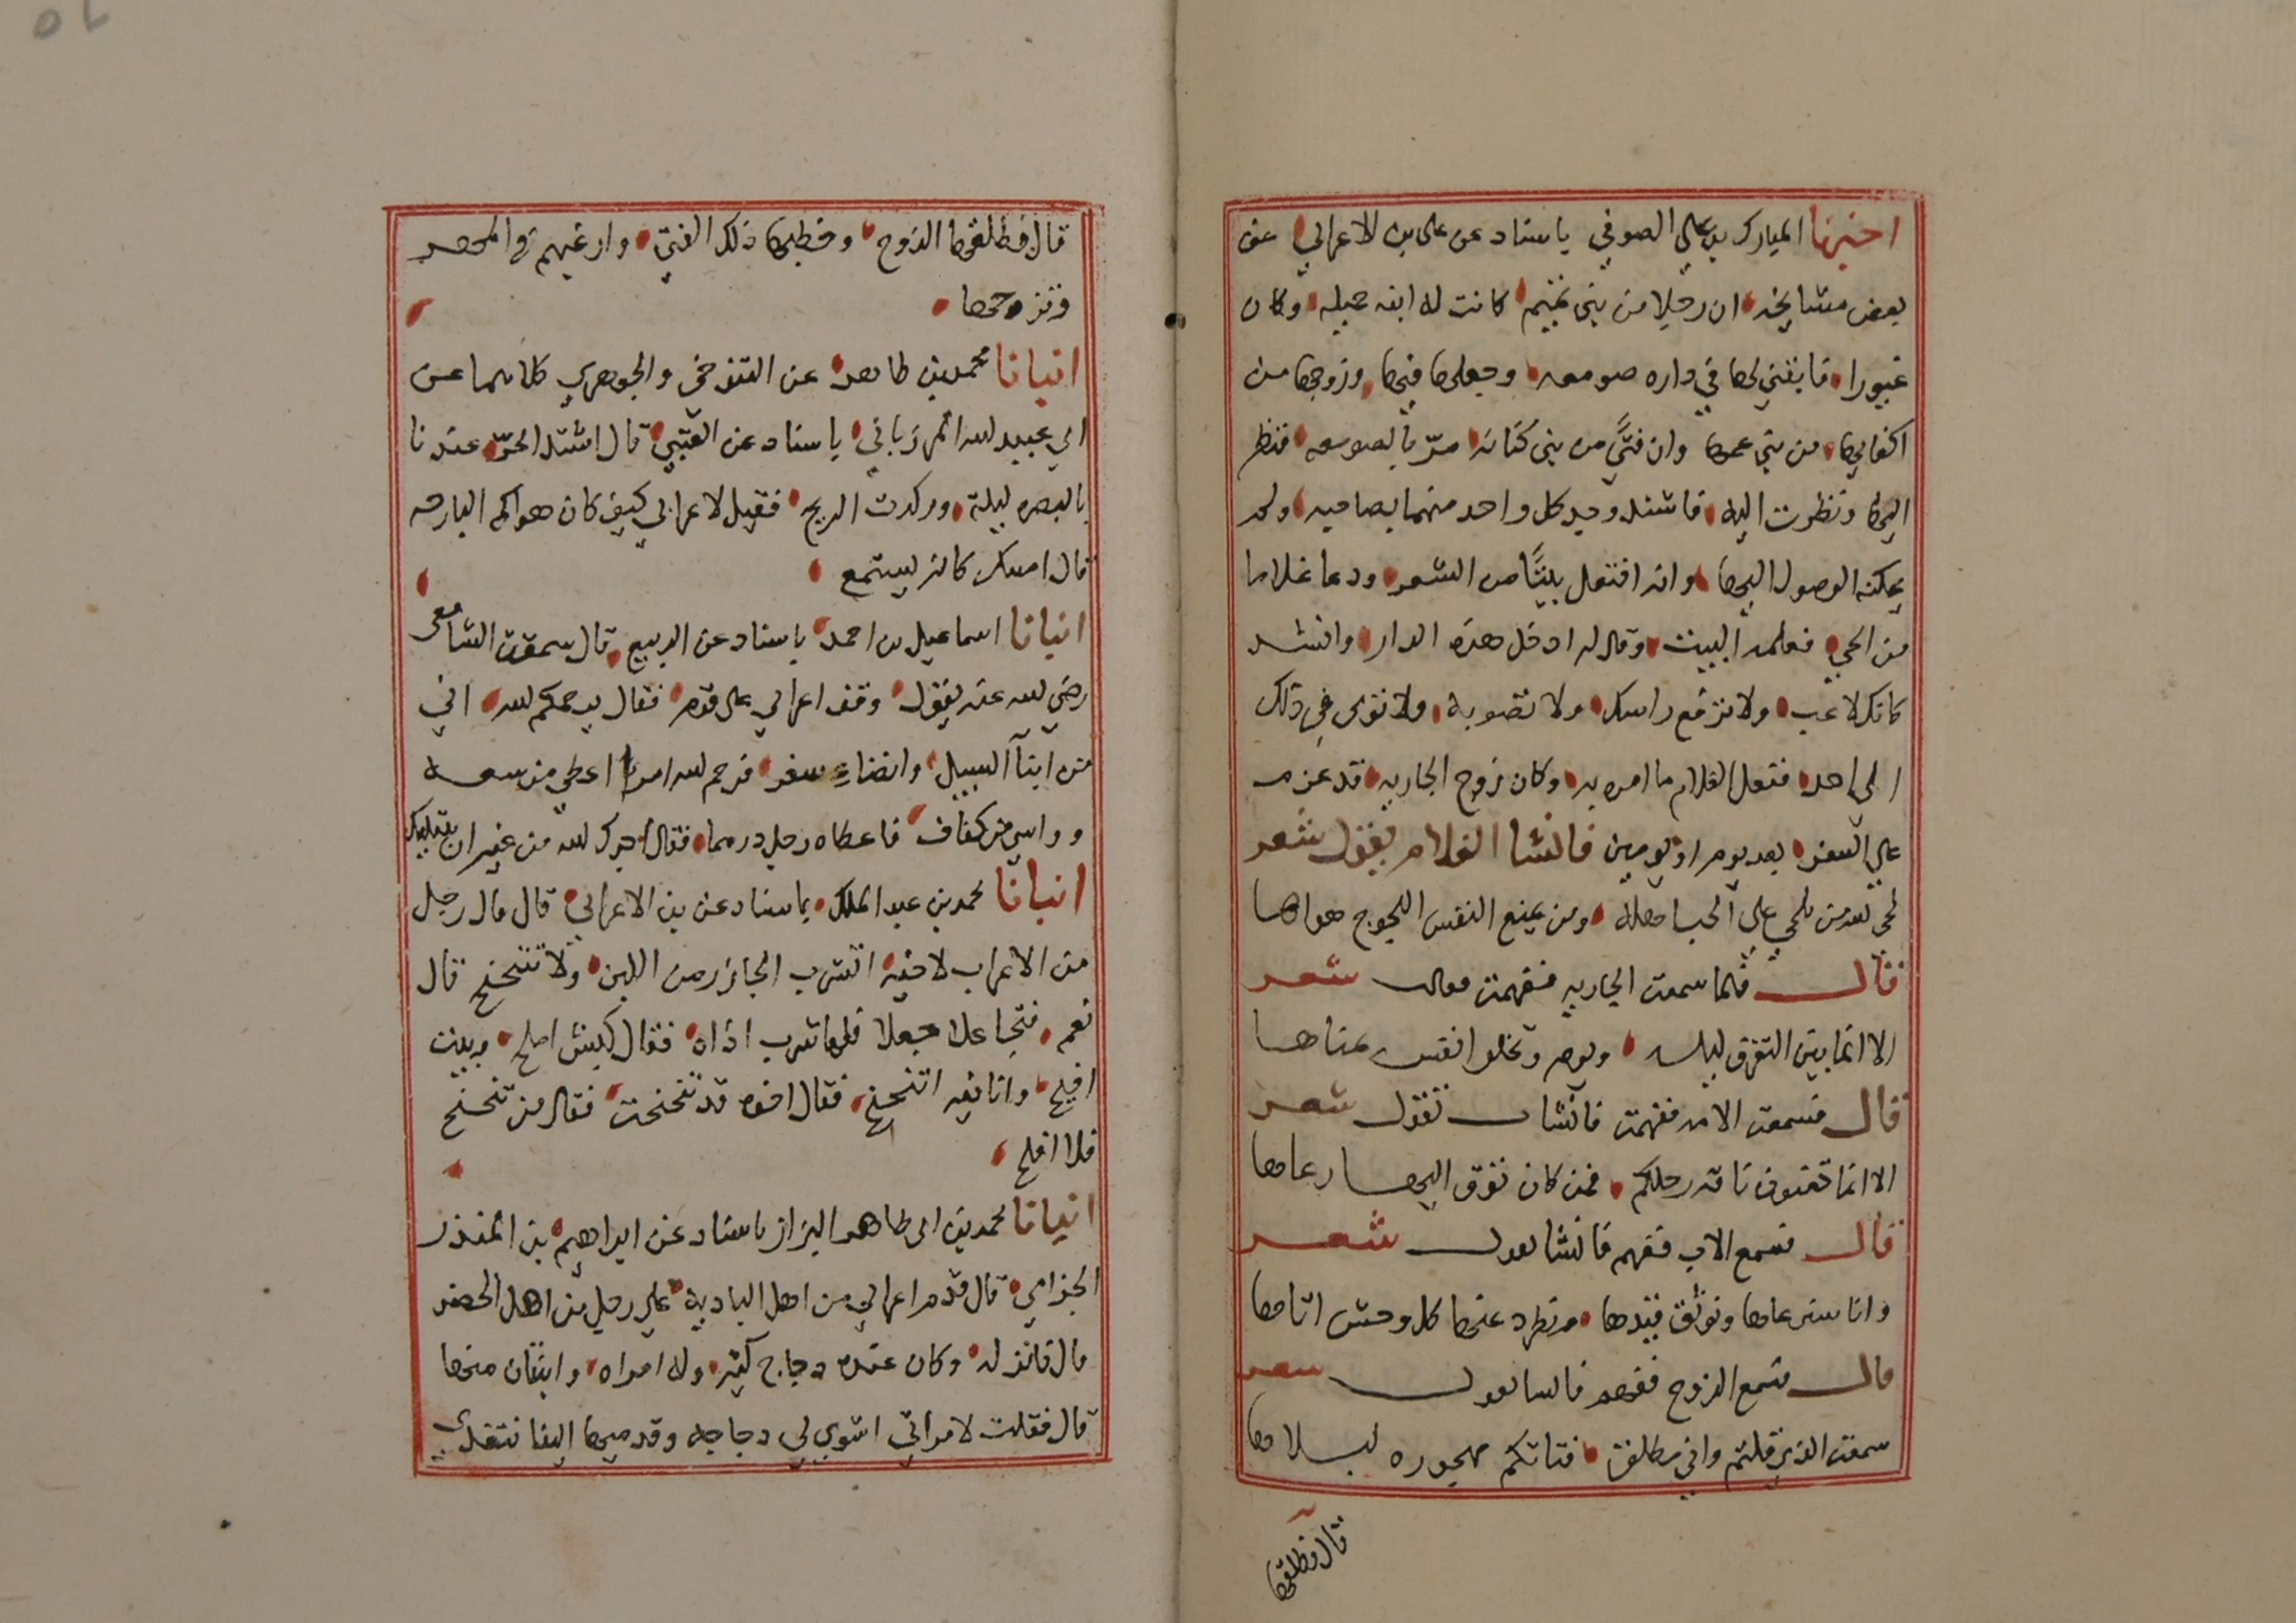 اخبرنا المبارك بن علي الصوفي باسناد عن على بن الاعرابي عن
بعض مشايخه ان رجلا من بني تميم كانت له ابنه جميله وكان
غيورا فابتنى لها في داره صومعه وجعلها فيها وزوجها من
اكفايها من بني عمها وان فتًى من بني كنانه مرّ بالصومعه فنظر
اليها ونظرت اليه فاشتد وجد كل واحد منهما بصاحبه ولم
يمكنه الوصول اليها وانه افتعل بيتًا من الشعر ودعا غلاما
من الحي فعلمه البيت وقال له ادخل هذه الدار وانشد
كانك لاعب ولا ترفع راسك ولا تصوبه ولا تومى في ذلك
الى احد ففعل الغلام ما امره به وكان زوج الجاريه قد عزم
على السفر بعد يوم او يومين فانشا الغلام يقول شعر
لحى الله من يلحي على الحب اهله ومن يمنع النفس اللجوج هواها
قال فلما سمعت الجاريه ففهمت فقالت شعر
الا انما بين التفرق ليله ويوم وتعطى النفس مناها
قال فسمعت الام ففهمت فانشات تقول شعر
الا انما تعنون ناقه رحلكم فمن كان ذو نوق اليها رعاها
قال فسمع الاب ففهم فانشا يقول شعر
وانا سنرعاها ونوثق قيدها ونطرد عنها كل وحش اتاها
قال فسمع الزوج ففهم فانشا يقول شعر
سمعت الذي قلتم واني مطلق فتاتكم مهجوره لبلاها
قال فطلقها
قال فطلقها الزوج وخطبها ذلك الفتى وارغبهم في المهر
فتزوجها
انبانا محمد بن طاهر عن التنوخى والجوهري كلاهما عن
ابي عبيد الله المرزباني باسناد عن العتبي قال اشتد الحرّ عندنا
بالبصره ليلة وركدت الريح فقيل لاعرابي كيف كان هواكم البارحه
قال امسك كانه يستمع
انبانا اسماعيل بن احمد باسناد عن الربيع قال سمعت الشافعى
رضي الله عنه يقول وقف اعرابي على قوم فقال يرحمكم الله اني
من ابنآ السبيل وانضاء سفر فرحم الله امرا اعطى من سعه
وواسى من كفاف فاعطاه رجل درهما فقال اجرك الله من غير ان يبتليك
انبانا محمد بن عبد الملك باسناد عن بن الاعرابي قال قال رجل
من الاعراب لاخيه اتشرب الخاثر من اللبن ولا تتنحنح قال
نعم فتجاعلا جعلا فلما شرب اذاه فقال كبش املح وبيت
افيح وانا فيه اتنحنح فقال اخوه قد تنحنحت فقال من تنحنح
فلا افلح
انبانا محمد بن ابى طاهر البزاز باسناد عن ابراهيم بن المنذر
الحزامي قال قدم اعرابي من اهل البادية على رجل من اهل الحضر
قال فانزله وكان عنده دجاج كثير وله امراه وابنتان منها
قال فقلت لامراتي اشوي لي دجاجه وقدميها الينا نتغدى